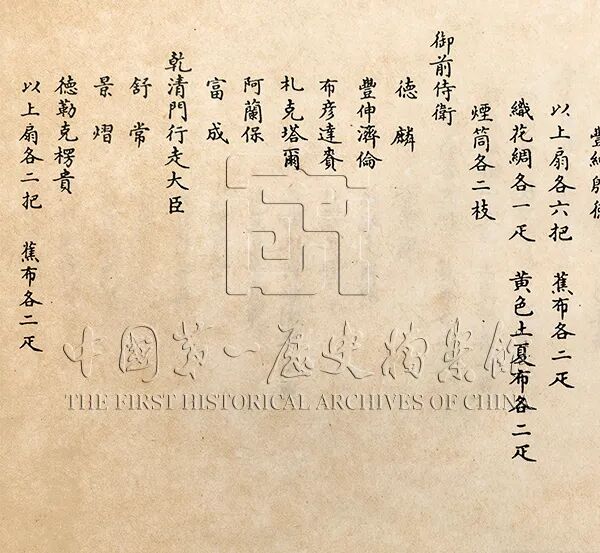 豐紳殷德
以上扇各六把 蕉布各二疋
織花綢各一疋 黄色土夏布各二疋
煙筒各二枝
御前侍衛
德麟
豐伸濟倫
布彦達賚
札克塔爾
阿蘭保
富成
乾清門行走大臣
舒常
景熠
德勒克楞貴
以上扇各二把 蕉布各二疋
中國第一歷史檔案館
THE FIRST HISTORICAL ARCHIVES OF CHINA